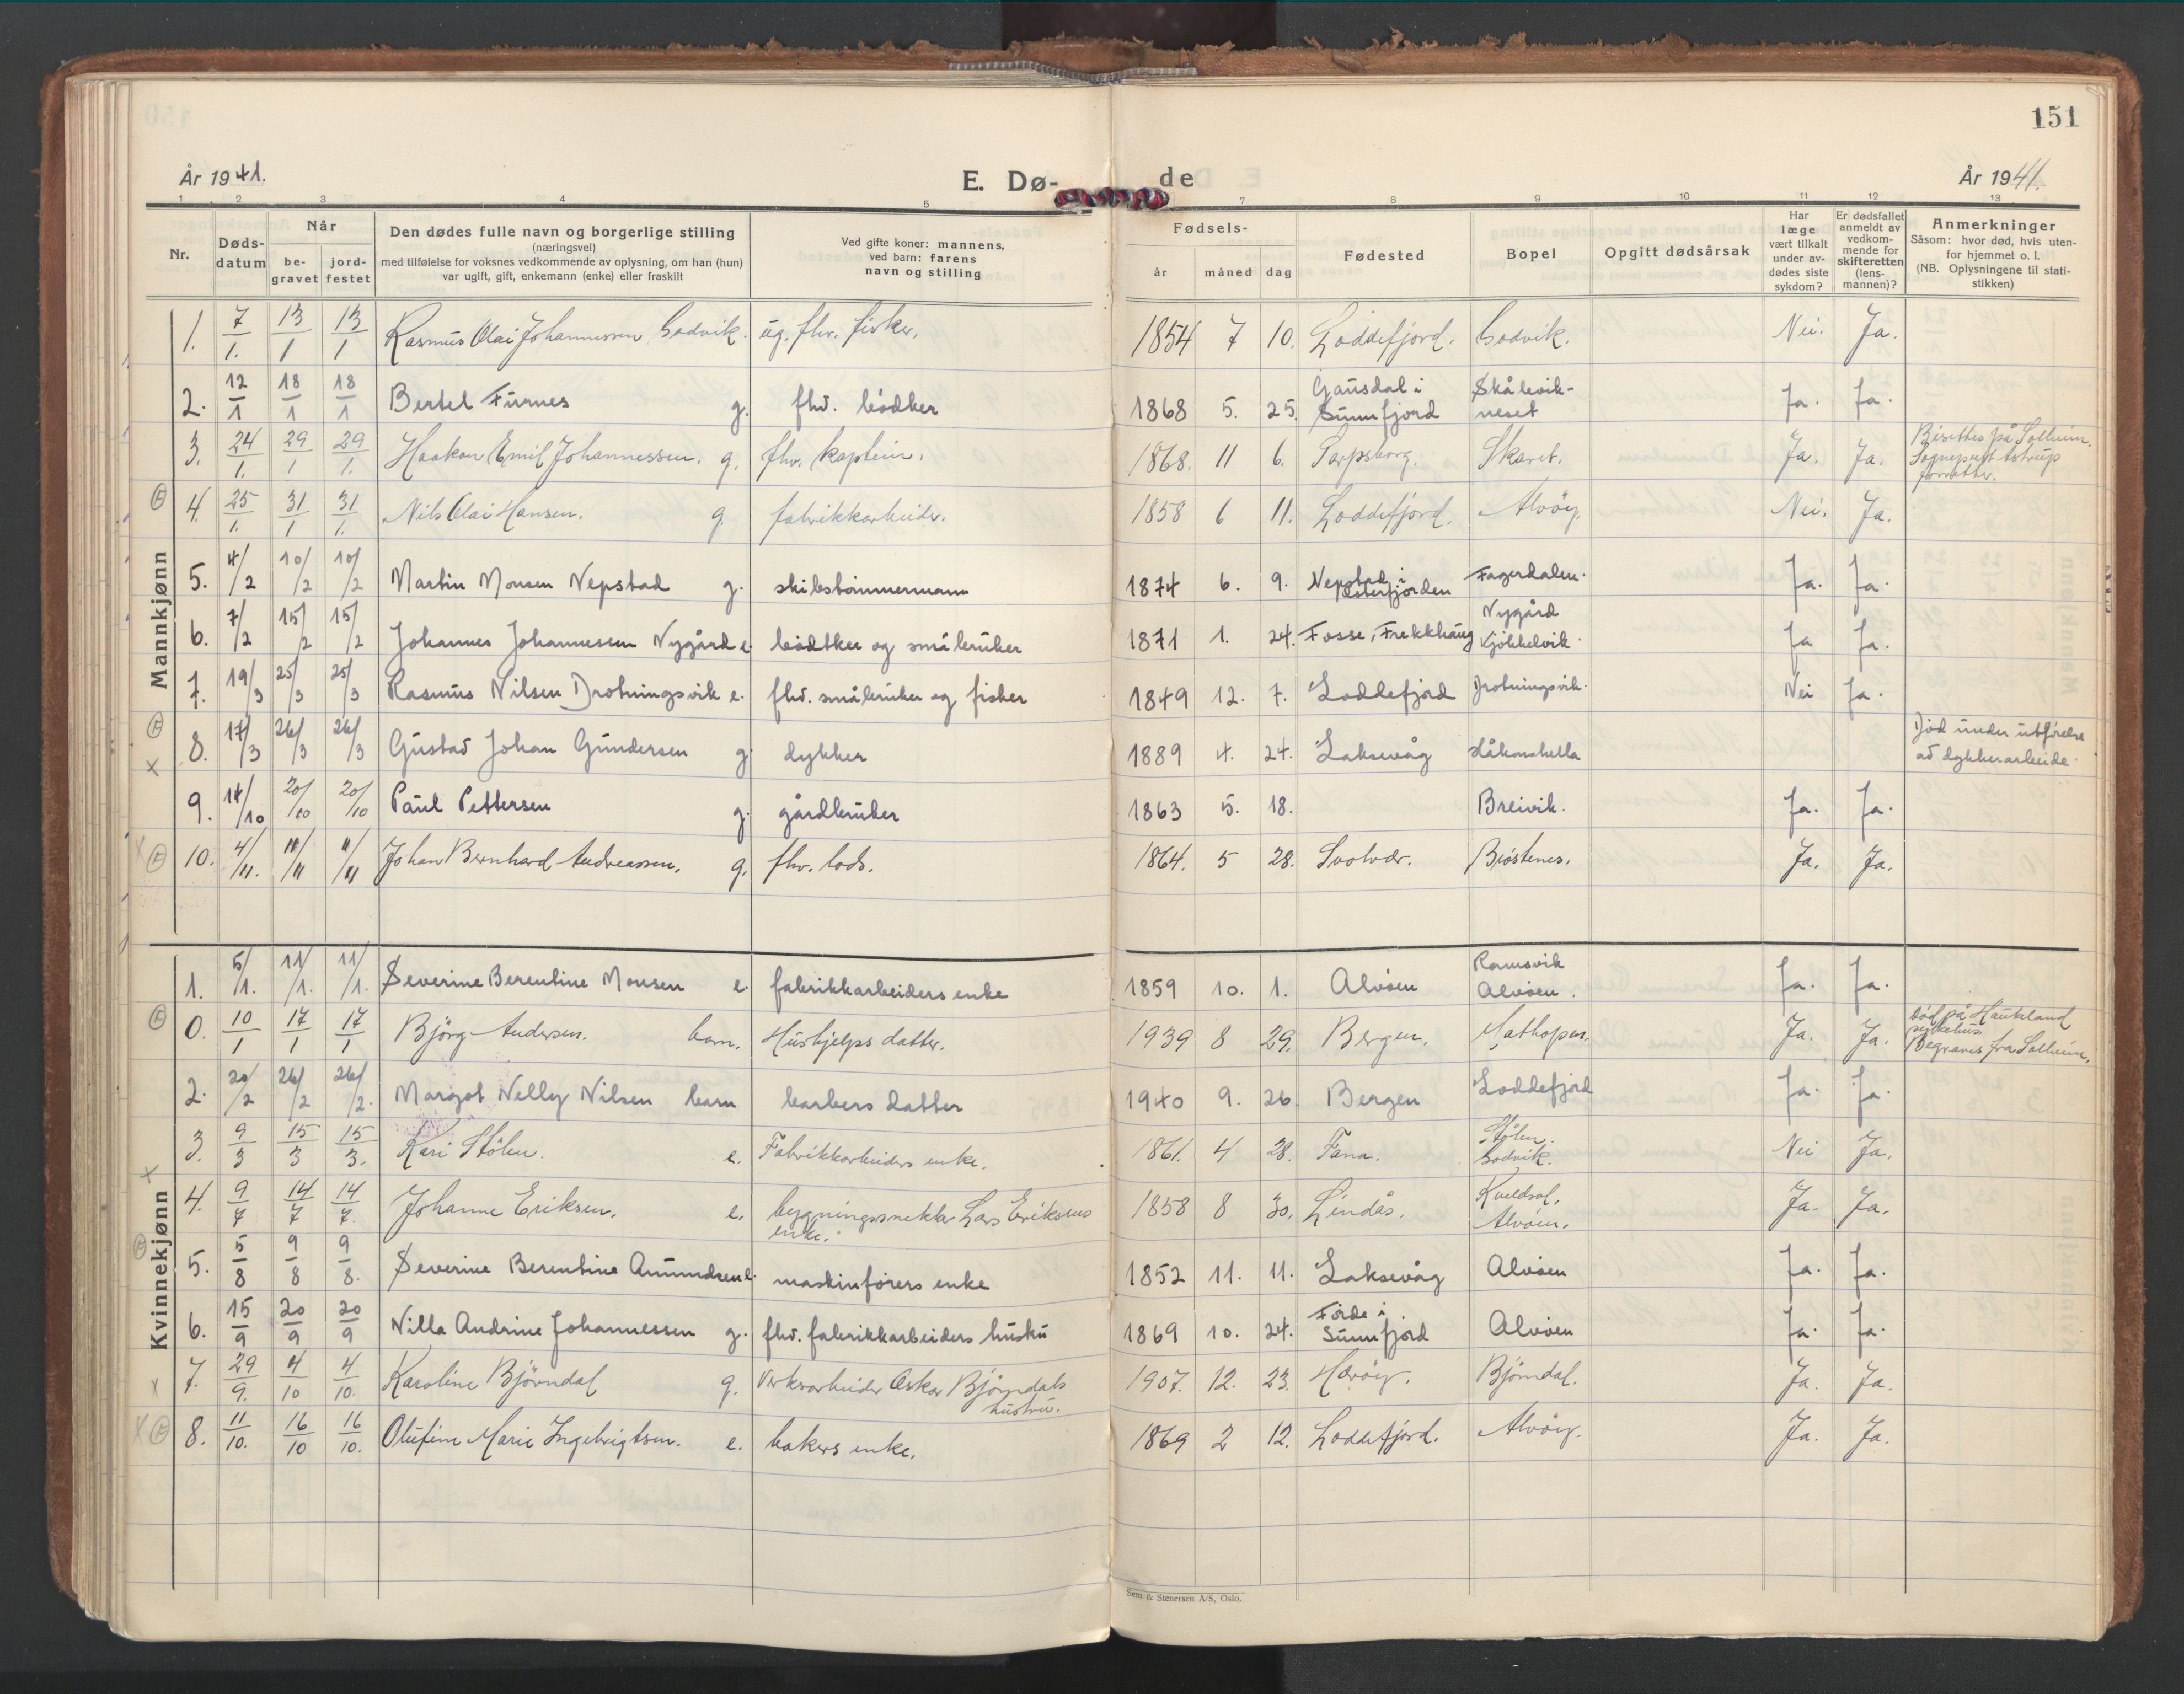 151
År 1941.
E. Dø-
de
År 1941.
1 2 3 4 5 7 8 9 10 11 12 13
Nr.
Døds-
datum
Når
be-
gravet
jord-
festet
Den dødes fulle navn og borgerlige stilling
(næringsvei)
med tilføielse for voksnes vedkommende av oplysning, om han (hun)
var ugift, gift, enkemann (enke) eller fraskilt
Ved gifte koner: mannens,
ved barn: farens
navn og stilling
Fødsels-
år
måned
dag
Fødested
Bopel
Opgitt dødsårsak
Har
læge
vært tilkalt
under av-
dødes siste
sykdom?
Er dødsfallet
anmeldt av
vedkom-
mende for
skifteretten
(lens-
mannen)?
Anmerkninger
Såsom: hvor død, hvis uten-
for hjemmet o. l.
(NB. Oplysningene til stati-
stikken)
Mannkjønn
1. 7/1. 13/1 13/1 Rasmus Olai Johannessen Godvik. ug. fhv. fisker. 1854 7 10. Loddefjord. Godvik. Nei. Ja.
2. 12/1 18/1 18/1 Bertel Furnes g. fhv. bödker 1868 5. 25. Gausdal i Sunnfjord Skålevik-neset Ja. Ja.
3. 24/1. 29/1 29/1. Haakon Emil Johannessen. g. fhv. kaptein. 1868. 11 6. Sarpsborg. Skaret. Ja. Ja. Bisettes på Solheim. Sogneprest Astrup forretter.
4. 25/1. 31/1 31/1. Nils Olai Hansen. g. fabrikkarbeider. 1858 6 11. Loddefjord. Alvöy. Nei. Ja.
5. 4/2 10/2 10/2 Martin Monsen Nepstad g. skibstømmermann 1874 6. 9. Nepstad i Osterfjorden Fagerdalen. Ja. Ja.
6. 7/2 15/2 15/2 Johannes Johannessen Nygård e. bödtker og småbruker 1871 1. 24. Fosse, Frekkhaug Nygård Kjøkkelvik. Ja Ja.
7. 19/3 25/3 25/3 Rasmus Nilsen Drotningsvik e. fhv. småbruker og fisker 1849 12. 7. Loddefjord Drotningsvik. Nei Ja.
8. 17/3 26/3 26/3 Gustav Johan Gundersen g. dykker 1889 4. 24. Laksevåg Håkonshella Död under utförelse av dykkerarbeide.
9. 14/10 20/10 20/10 Paul Pettersen g. gårdbruker 1863 5. 18. Breivik. Ja. Ja.
10. 4/11. 11/11 11/11 Johan Bernhard Andreassen. g. fhv. lods. 1864. 5 28. Svolvær. Bröstenes. Ja. Ja.
Kvinnekjønn
1. 5/1. 11/1. 11/1. Severine Berentine Monsen e. fabrikkarbeiders enke 1859 10. 1. Alvöen Ramsvik Alvöen. Ja. Ja.
0. 10/1 17/1 17/1 Björg Andersen. barn. Hushjelps datter. 1939 8 29. Bergen. Mathopen. Ja. Ja. död på Haukeland sykehus. Begraves fra Solheim.
2. 20/2 26/2 26/2. Margot Nelly Nilsen barn barbers datter 1940 9. 26. Bergen Loddefjord Ja. Ja.
3. 9/3 15/3 15/3. Kari Stölen. e. Fabrikkarbeiders enke. 1861. 4 28. Fana. Stölen. Godvik. Nei Ja.
4. 9/7 14/7 14/7. Johanne Eriksen. e. bygningssnekker Lars Eriksens enke. 1858 8 30. Lindås. Kveldsol. Alvöen. Ja. Ja.
5. 5/8 9/8 9/8. Severine Berentine Amundsen e. maskinförers enke 1852 11. 11. Laksevåg Alvöen Ja. Ja.
6. 15/9 20/9 20/9 Nilla Andrine Johannessen g. fhv. fabrikkarbeiders hustru 1869 10. 24. Förde i Sunnfjord Alvöen Ja. Ja.
7. 29/9. 4/10 4/10. Karoline Björndal g. Verksarbeider Oskar Björndals hustru. 1907. 12. 23. Haröy. Björndal. Ja. Ja.
8. 11/10. 16/10 16/10. Olufine Marie Ingebrigtsen. e. bakers enke. 1869 2 12. Loddefjord. Alvöy. Ja. Ja.
Sem & Stenersen A/S, Oslo.